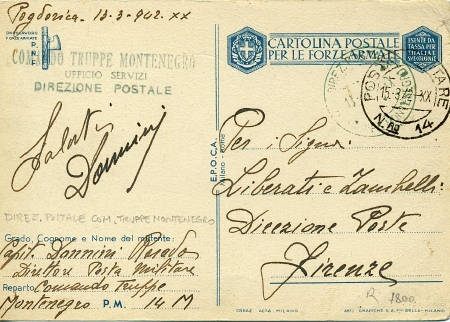 Pogdorica - 13-3-942.XX
P. N. F.
COMANDO TRUPPE MONTENEGRO
UFFICIO SERVIZI
DIREZIONE POSTALE
CARTOLINA POSTALE
PER LE FORZE ARMATE
ESENTE DA
TASSA PER
ITALIA
POSTA MILITARE
15-3-42 XX
N.ro 14
Saluti
Dannini
E.P.O.C.A.
Milano - Roma
Per i Signri
Liberati e Zanchelli
Direzione Poste
Firenze
DIREZ. POSTALE COM. TRUPPE MONTENEGRO
Grado, Cognome e Nome del mittente:
Capit. Dannini Rosado
Direttore Posta Militare
Reparto Comando Truppe
Montenegro P. M. 14 M
CORAZ ALTA, MILANO
R 1800